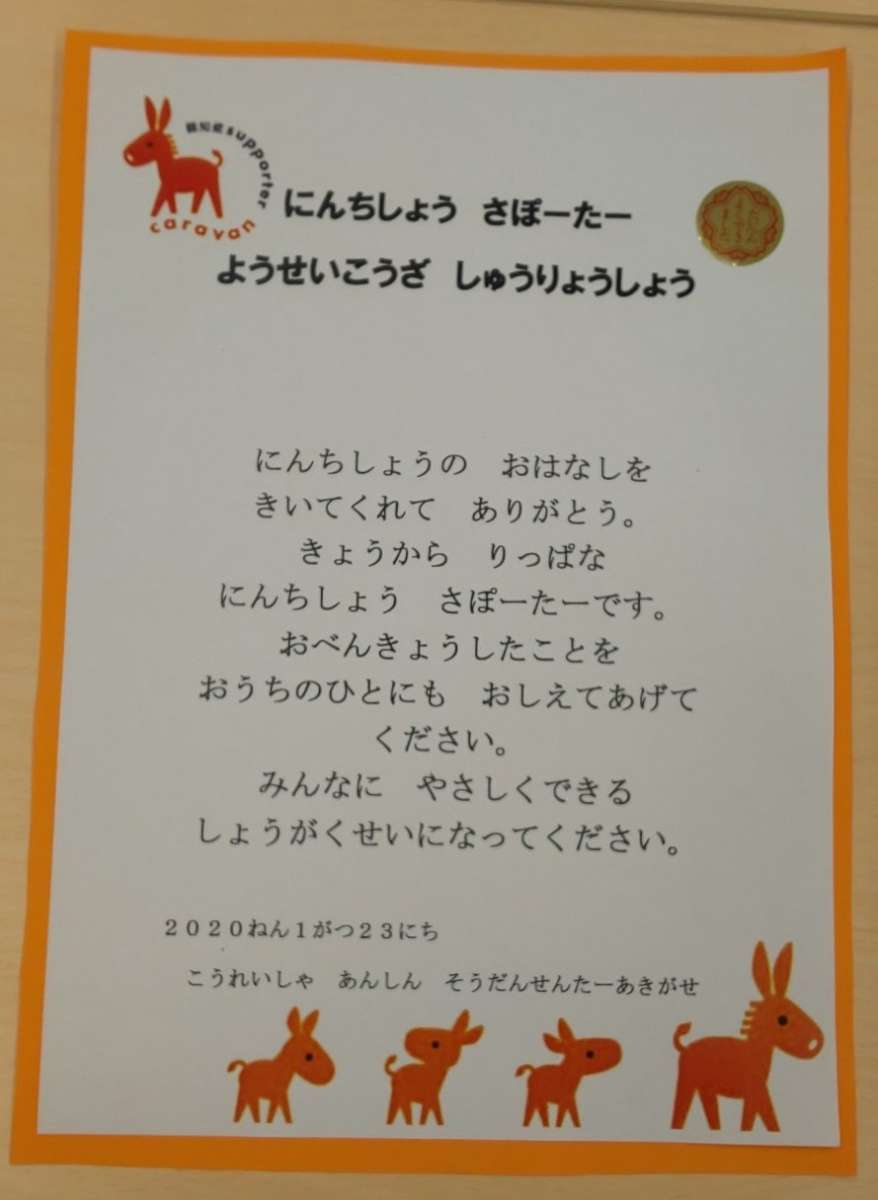 認知症supporter
caravan
にんちしょう　さぽーたー
ようせいこうざ　しゅうりょうしょう
にんちしょうの　おはなしを
きいてくれて　ありがとう。
きょうから　りっぱな
にんちしょう　さぽーたーです。
おべんきょうしたことを
おうちのひとにも　おしえてあげて
ください。
みんなに　やさしくできる
しょうがくせいになってください。
２０２０ねん１がつ２３にち
こうれいしゃ　あんしん　そうだんせんたーあきがせ